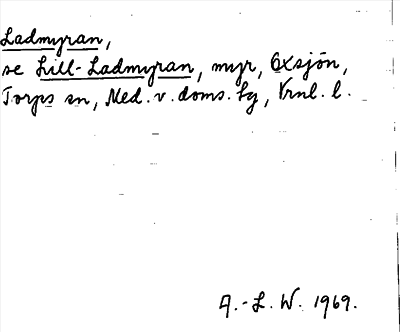 Ladmyran,
se Lill-Ladmyran, myr, Oxsjön,
Torps sn, Med. v. doms. fg, Vrnl. l.
A.-L. W. 1969.